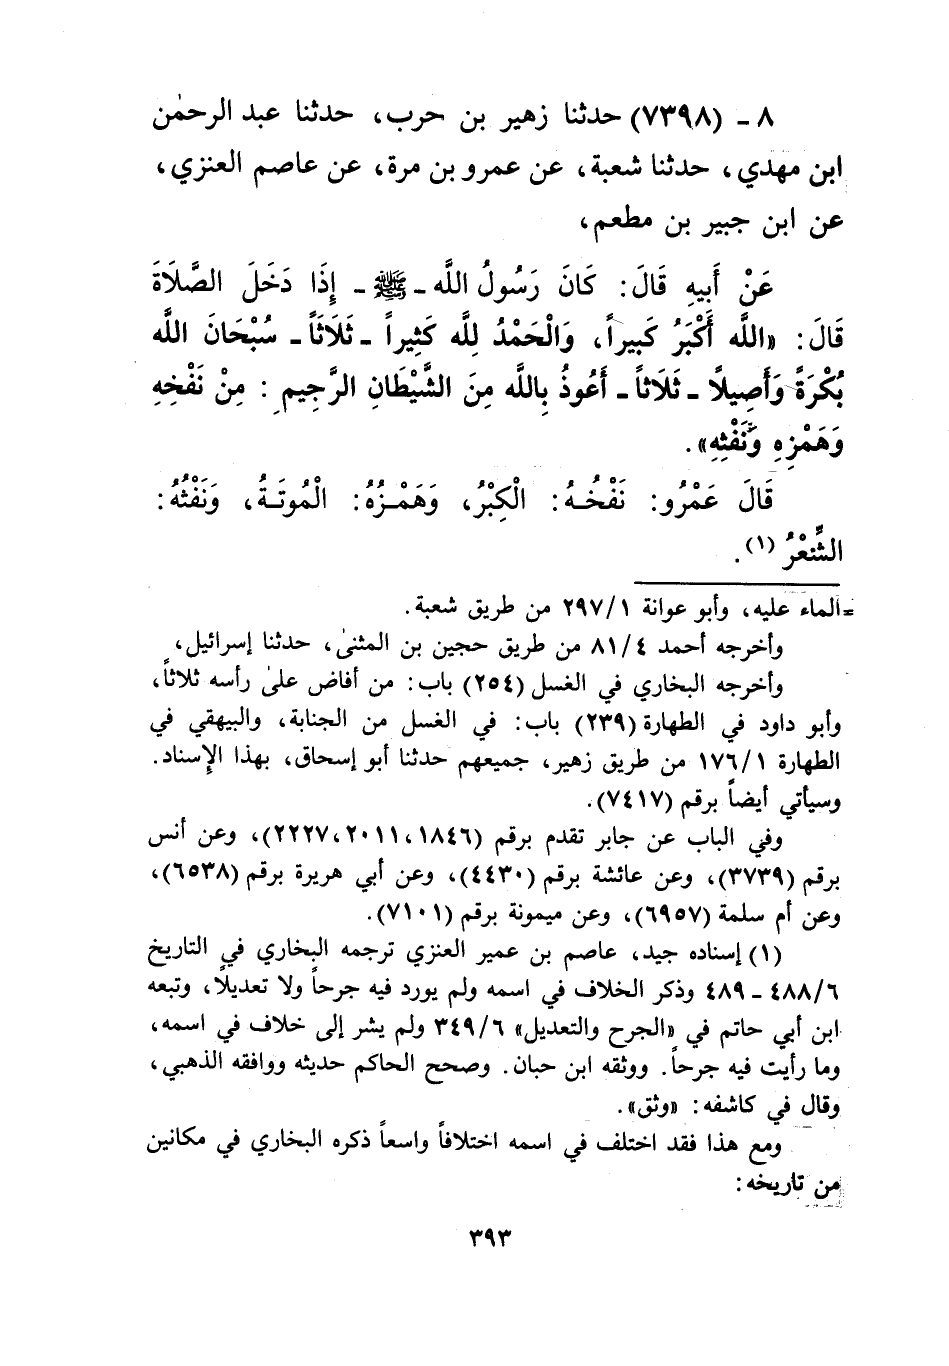 ٨ - (٧٣٩٨) حدثنا زهير بن حرب، حدثنا عبد الرحمٰن
ابن مهدي، حدثنا شعبة، عن عمرو بن مرة، عن عاصم العنزي،
عن ابن جبير بن مطعم،
عَنْ أَبِيهِ قَالَ: كَانَ رَسُولُ اللَّه - ﷺ - إِذَا دَخَلَ الصَّلَاةَ
قَالَ: «اللَّه أَكْبَرُ كَبِيراً، وَالْحَمْدُ لِلَّه كَثِيراً - ثَلَاثاً - سُبْحَانَ اللَّه
بُكْرَةً وَأَصِيلًا - ثَلَاثاً - أَعُوذُ بِاللَّه مِنَ الشَّيْطَانِ الرَّجِيمِ: مِنْ نَفْخِهِ
وَهَمْزِهِ وَنَفْثِهِ».
قَالَ عَمْرُو: نَفْخُهُ: الْكِبْرُ، وَهَمْزُهُ: الْمُوتَةُ، وَنَفْثُهُ:
الشِّعْرُ (١).
=الماء عليه، وأبو عوانة ٢٩٧/١ من طريق شعبة.
وأخرجه أحمد ٨١/٤ من طريق حجين بن المثنىٰ، حدثنا إسرائيل،
وأخرجه البخاري في الغسل (٢٥٤) باب: من أفاض علىٰ رأسه ثلاثاً،
وأبو داود في الطهارة (٢٣٩) باب: في الغسل من الجنابة، والبيهقي في
الطهارة ١٧٦/١ من طريق زهير، جميعهم حدثنا أبو إسحاق، بهذا الإسناد.
وسيأتي أيضاً برقم (٧٤١٧).
وفي الباب عن جابر تقدم برقم (١٨٤٦، ٢٠١١، ٢٢٢٧)، وعن أنس
برقم (٣٧٣٩)، وعن عائشة برقم (٤٤٣٠)، وعن أبي هريرة برقم (٦٥٣٨)،
وعن أم سلمة (٦٩٥٧)، وعن ميمونة برقم (٧١٠١).
(١) إسناده جيد، عاصم بن عمير العنزي ترجمه البخاري في التاريخ
٤٨٨/٦ - ٤٨٩ وذكر الخلاف في اسمه ولم يورد فيه جرحاً ولا تعديلاً، وتبعه
ابن أبي حاتم في «الجرح والتعديل» ٣٤٩/٦ ولم يشر إلى خلاف في اسمه،
وما رأيت فيه جرحاً. ووثقه ابن حبان. وصحح الحاكم حديثه ووافقه الذهبي،
وقال في كاشفه: «وثق».
ومع هذا فقد اختلف في اسمه اختلافاً واسعاً ذكره البخاري في مكانين
من تاريخه:
٣٩٣